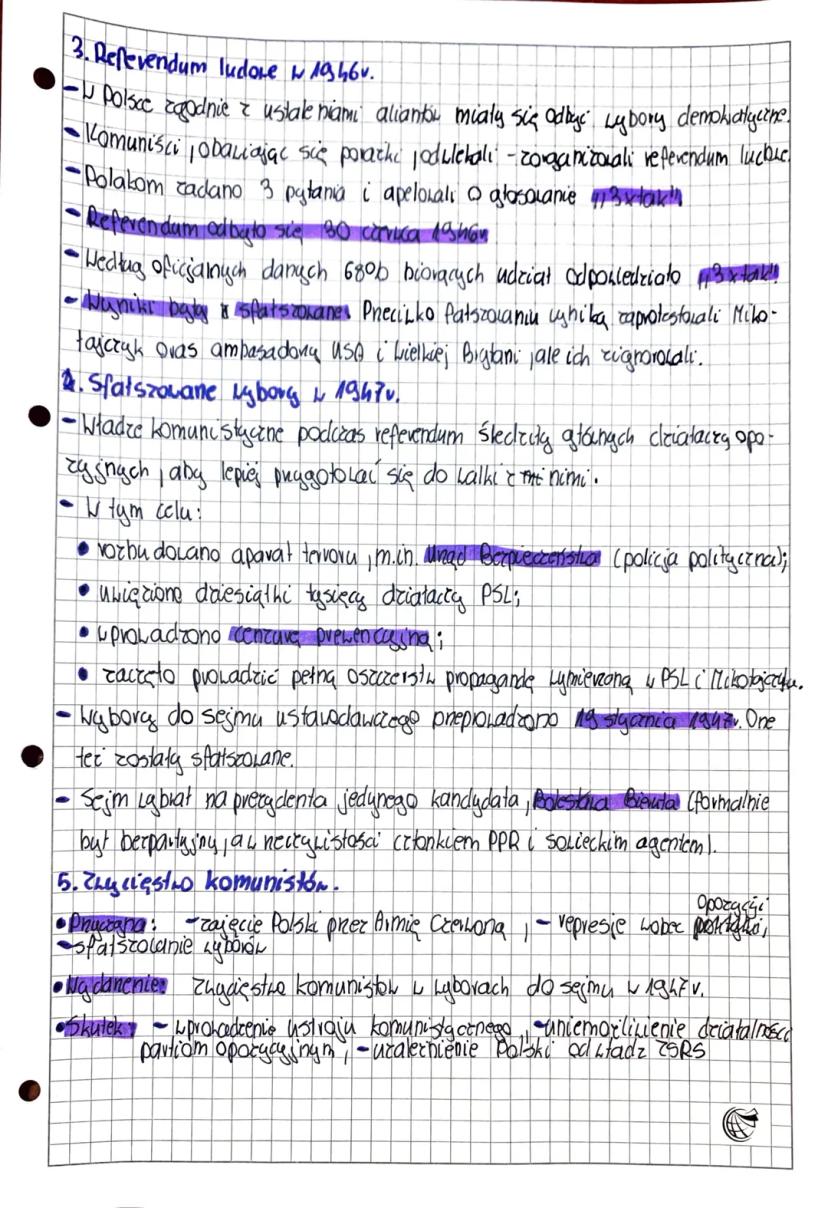 3. Referendum ludowe w 1946r.
- W Polsce zgodnie z ustaleniami aliantów miały się odbyć wybory demokratyczne.
- Komuniści, obawiając się porażki, odwlekali - zorganizowali referendum ludowe.
- Polakom zadano 3 pytania i apelowali o głosowanie „3xtak".
- Referendum odbyło się 30 czerwca 1946r
- Według oficjalnych danych 68% biorących udział odpowiedziało „3xtak".
- Wyniki były sfałszowane. Przeciwko fałszowaniu wynika zaprotestowali Miko-
łajczyk oraz ambasadorzy USA i Wielkiej Brytani, ale ich zignorowali.
4. Sfałszowane wybory w 1947r.
- Władze komunistyczne podczas referendum śledziły głównych działaczy opo-
zycyjnych, aby lepiej przygotować się do walki z nimi.
- W tym celu:
• rozbudowano aparat terroru, m.in. Urząd Bezpieczeństwa (policja polityczna);
• uwięziono dziesiątki tysięcy działaczy PSL;
• wprowadzono cenzurę prewencyjną;
• zaczęto prowadzić pełną oszczerstw propagandę wymierzoną w PSL i Mikołajczyka.
- Wybory do sejmu ustawodawczego przeprowadzono 19 stycznia 1947r. One
też zostały sfałszowane.
- Sejm wybrał na prezydenta jedynego kandydata, Bolesława Bieruta (formalnie
był bezpartyjny, a w rzeczywistości członkiem PPR i sowieckim agentem).
5. Zwycięstwo komunistów.
• Przyczyna: - zajęcie Polski przez Armię Czerwoną, - represje wobec opozycji,
- sfałszowanie wyborów
• Wydarzenie: Zwycięstwo komunistów w wyborach do sejmu w 1947r.
• Skutek: - wprowadzenie ustroju komunistycznego, - uniemożliwienie działalności
partiom opozycyjnym, - uzależnienie Polski od władz ZSRS